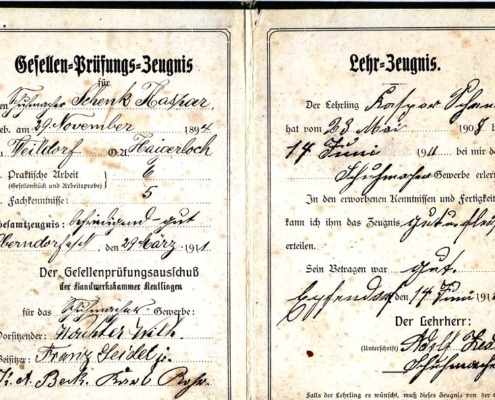 Gesellen-Prüfungs-Zeugnis
für
den Schuhmacher Schenk Kaspar,
geb. am 29. November 1894
zu Weildorf O/A Haigerloch
Praktische Arbeit 6
(Gesellenstück und Arbeitsprobe)
Fachkenntnisse: 5
Gesamtzeugnis: befriedigend - gut
Oberndorf, den 29 März 1911
Der Gesellenprüfungsausschuß
der Handwerkskammer Reutlingen
für das Schuhmacher-Gewerbe:
Vorsitzender: Wilh.
Beisitzer: Franz Seidel
K. A. Beck.
Lehr-Zeugnis.
Der Lehrling Kaspar Schen
hat vom 23 Mai 1908 b
14 Juni 1911 bei mir da
Schuhmacher Gewerbe erler
In den erworbenen Kenntnissen und Fertigkei
kann ich ihm das Zeugnis gut
erteilen.
Sein Betragen war gut.
Epfendorf den 14 Juni 191
Der Lehrherr:
(Unterschrift) Adolf
Schuhmacher
Falls der Lehrling es wünscht, muß dieses Zeugnis von der